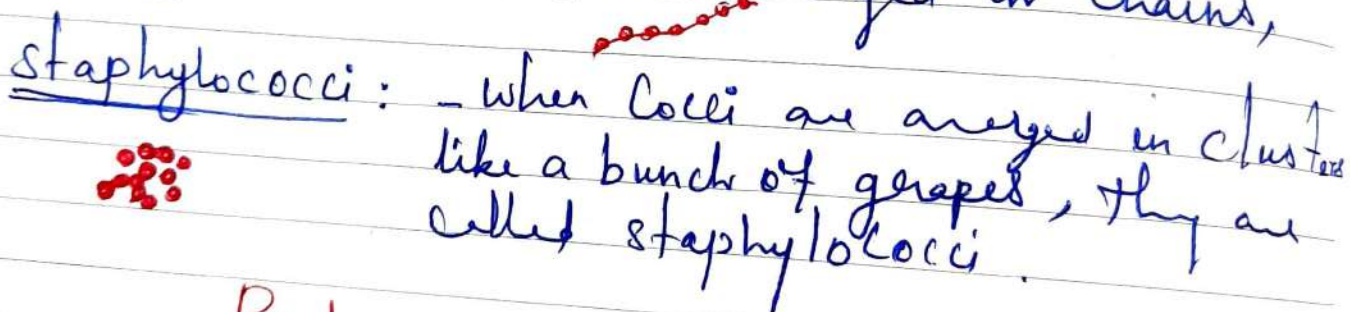 in chains,
staphylococci : - when Cocci are arranged in clusters
like a bunch of grapes, they are
called staphylococci.